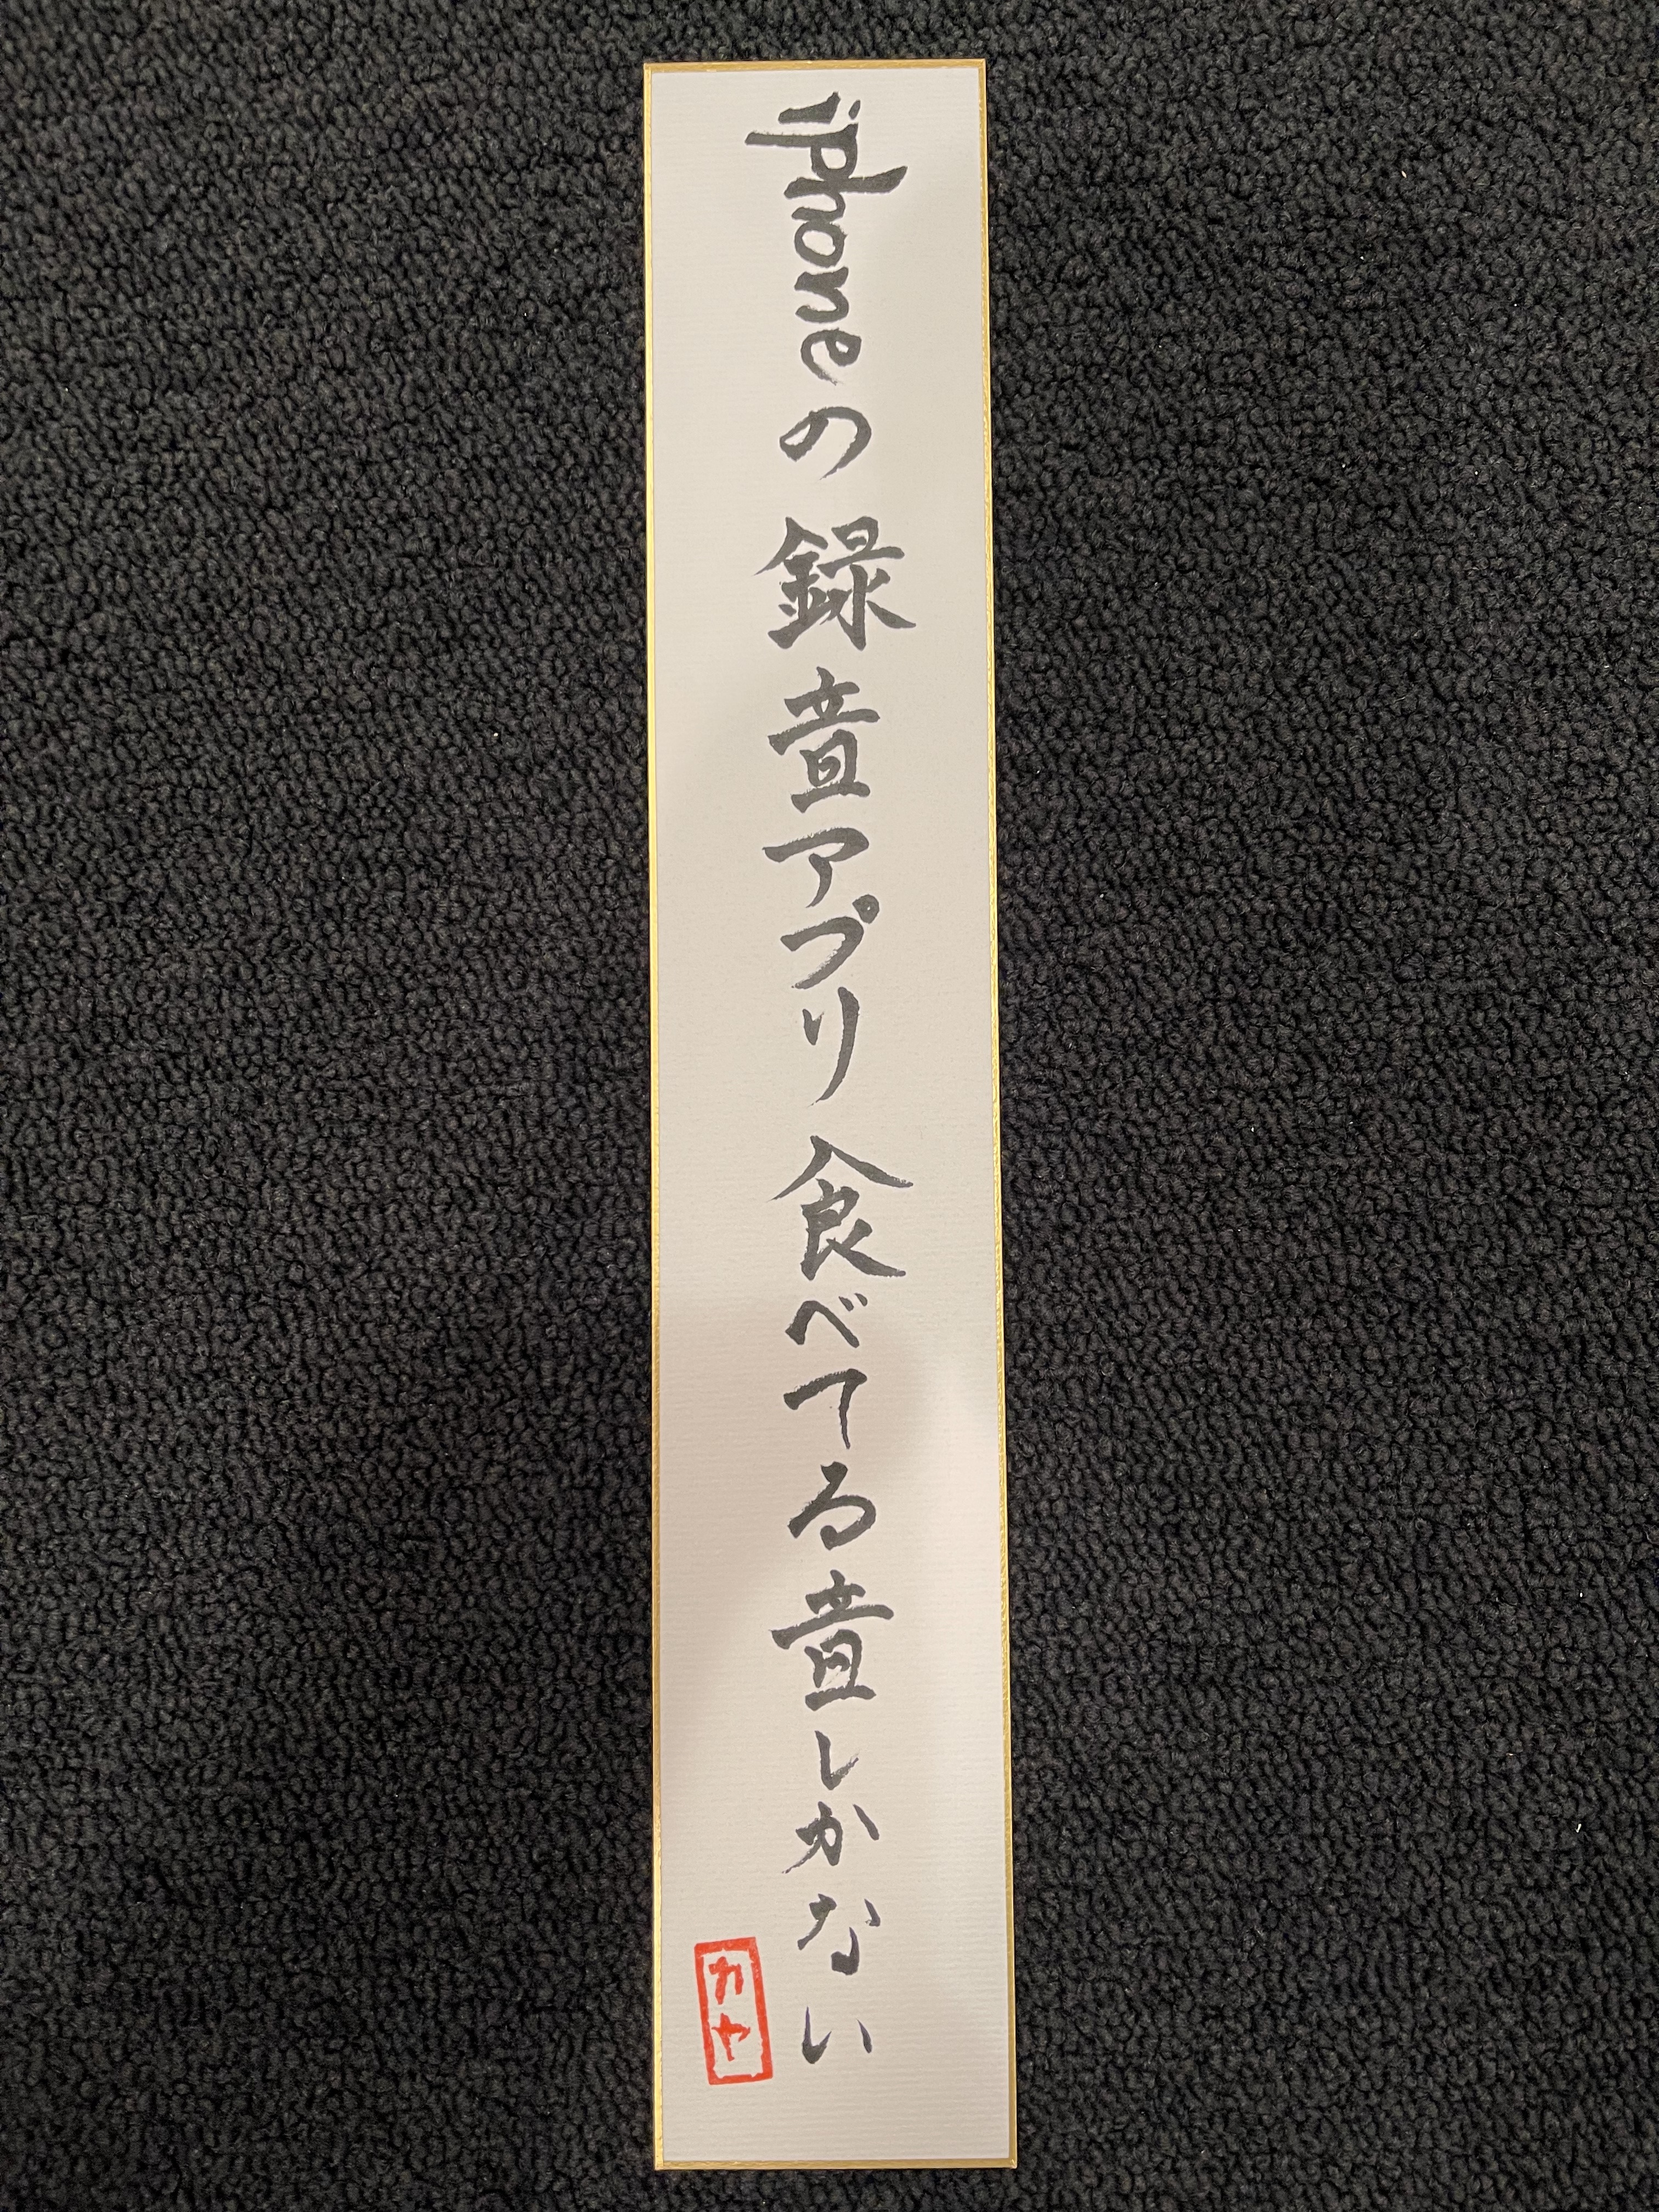 iphoneの録音アプリ食べてる音しかない
カヤ